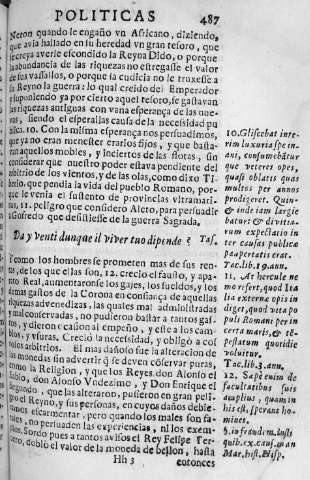 POLITICAS 487
Neron quando le engaño vn Africano, diziendo,
que avia hallado en su heredad vn gran tesoro, que
se creya averle escondido la Reyna Dido, o porque
la abundancia de las riquezas no estregasse el valor
de sus vassallos, o porque la cudicia no le truxesse a
su Reyno la guerra: lo qual creido del Emperador
y suponiendo ya por cierto aquel tesoro, se gastavan
las riquezas antiguas con vana esperança de las nue-
vas, siendo el esperallas causa de la necesidad pu
blica. 10. Con la misma esperança nos persuadimos,
que ya no eran menester erarios fijos, y que basta-
ran aquellos mobles, y inciertos de las flotas, sin
considerar que nuestro poder estava pendiente del
arbitrio de los vientos, y de las olas, como dixo Ti
berio, que pendia la vida del pueblo Romano, por-
que le venia el sustento de provincias vltramari-
nas, 11. peligro que considero Aleto, para persuadir
a Gofredo que desistiesse de la guerra Sagrada.
Da y venti dunque il viver tuo dipende? Tas.
I como los hombres se prometen mas de sus ren-
tas, de los que ellas son, 12. crecio el fausto, y apa-
rato Real, aumentaronse los gajes, los sueldos, y los
demas gastos de la Corona en confiança de aquellas
riquezas advenedizas, las quales mal administradas
y mal conservadas, no pudieron bastar a tantos gas-
tos, y dieron ocasion al empeño, y este a los cam-
bios, y vsuras. Creciò la necessidad, y obligò a cos
tosos arbitrios. El mas dañoso fue la alteracion de
las monedas sin advertir q̃ se deven cõservar puras,
como la Religion, y que los Reyes don Alonso el
Sabio, don Alonso Vndezimo, y Don Enrique el
Segundo, que las alteraron, pusieron en gran peli-
gro el Reyno, y sus personas, en cuyos daños debie-
ramos escarmentar, pero quando los males son fa-
tales, no persuaden las experiencias, ni los exem-
plos. Sordo pues a tantos avisos el Rey Felipe Ter-
cero, doblò el valor de la moneda de bellon, hasta
Hh 3 entonces
10. Gliscebat inte-
rim luxuria spe in-
ani, consumebãtur
que veteres opes,
quasi oblatis quas
multos per annos
prodigeret. Quin-
& inde iam largie
batur: & divitia-
rum expectatio in
ter causas publicæ
paupertatis erat.
Tac. lib. 16. ann.
11. At hercule ne
mo refert, quod Ita
lia externa opis in
diget, quod vita po
puli Romani per in
certa maris, & tẽ-
pestatum quotidie
volvitur.
Tac. lib. 3. ann.
12. Sapè enim de
facultatibus suis
amplius, quam in
his est, sperant ho-
mines.
§. in fraudem. Iusti
quib. ex caus. man
Mar. hist. Hisp.